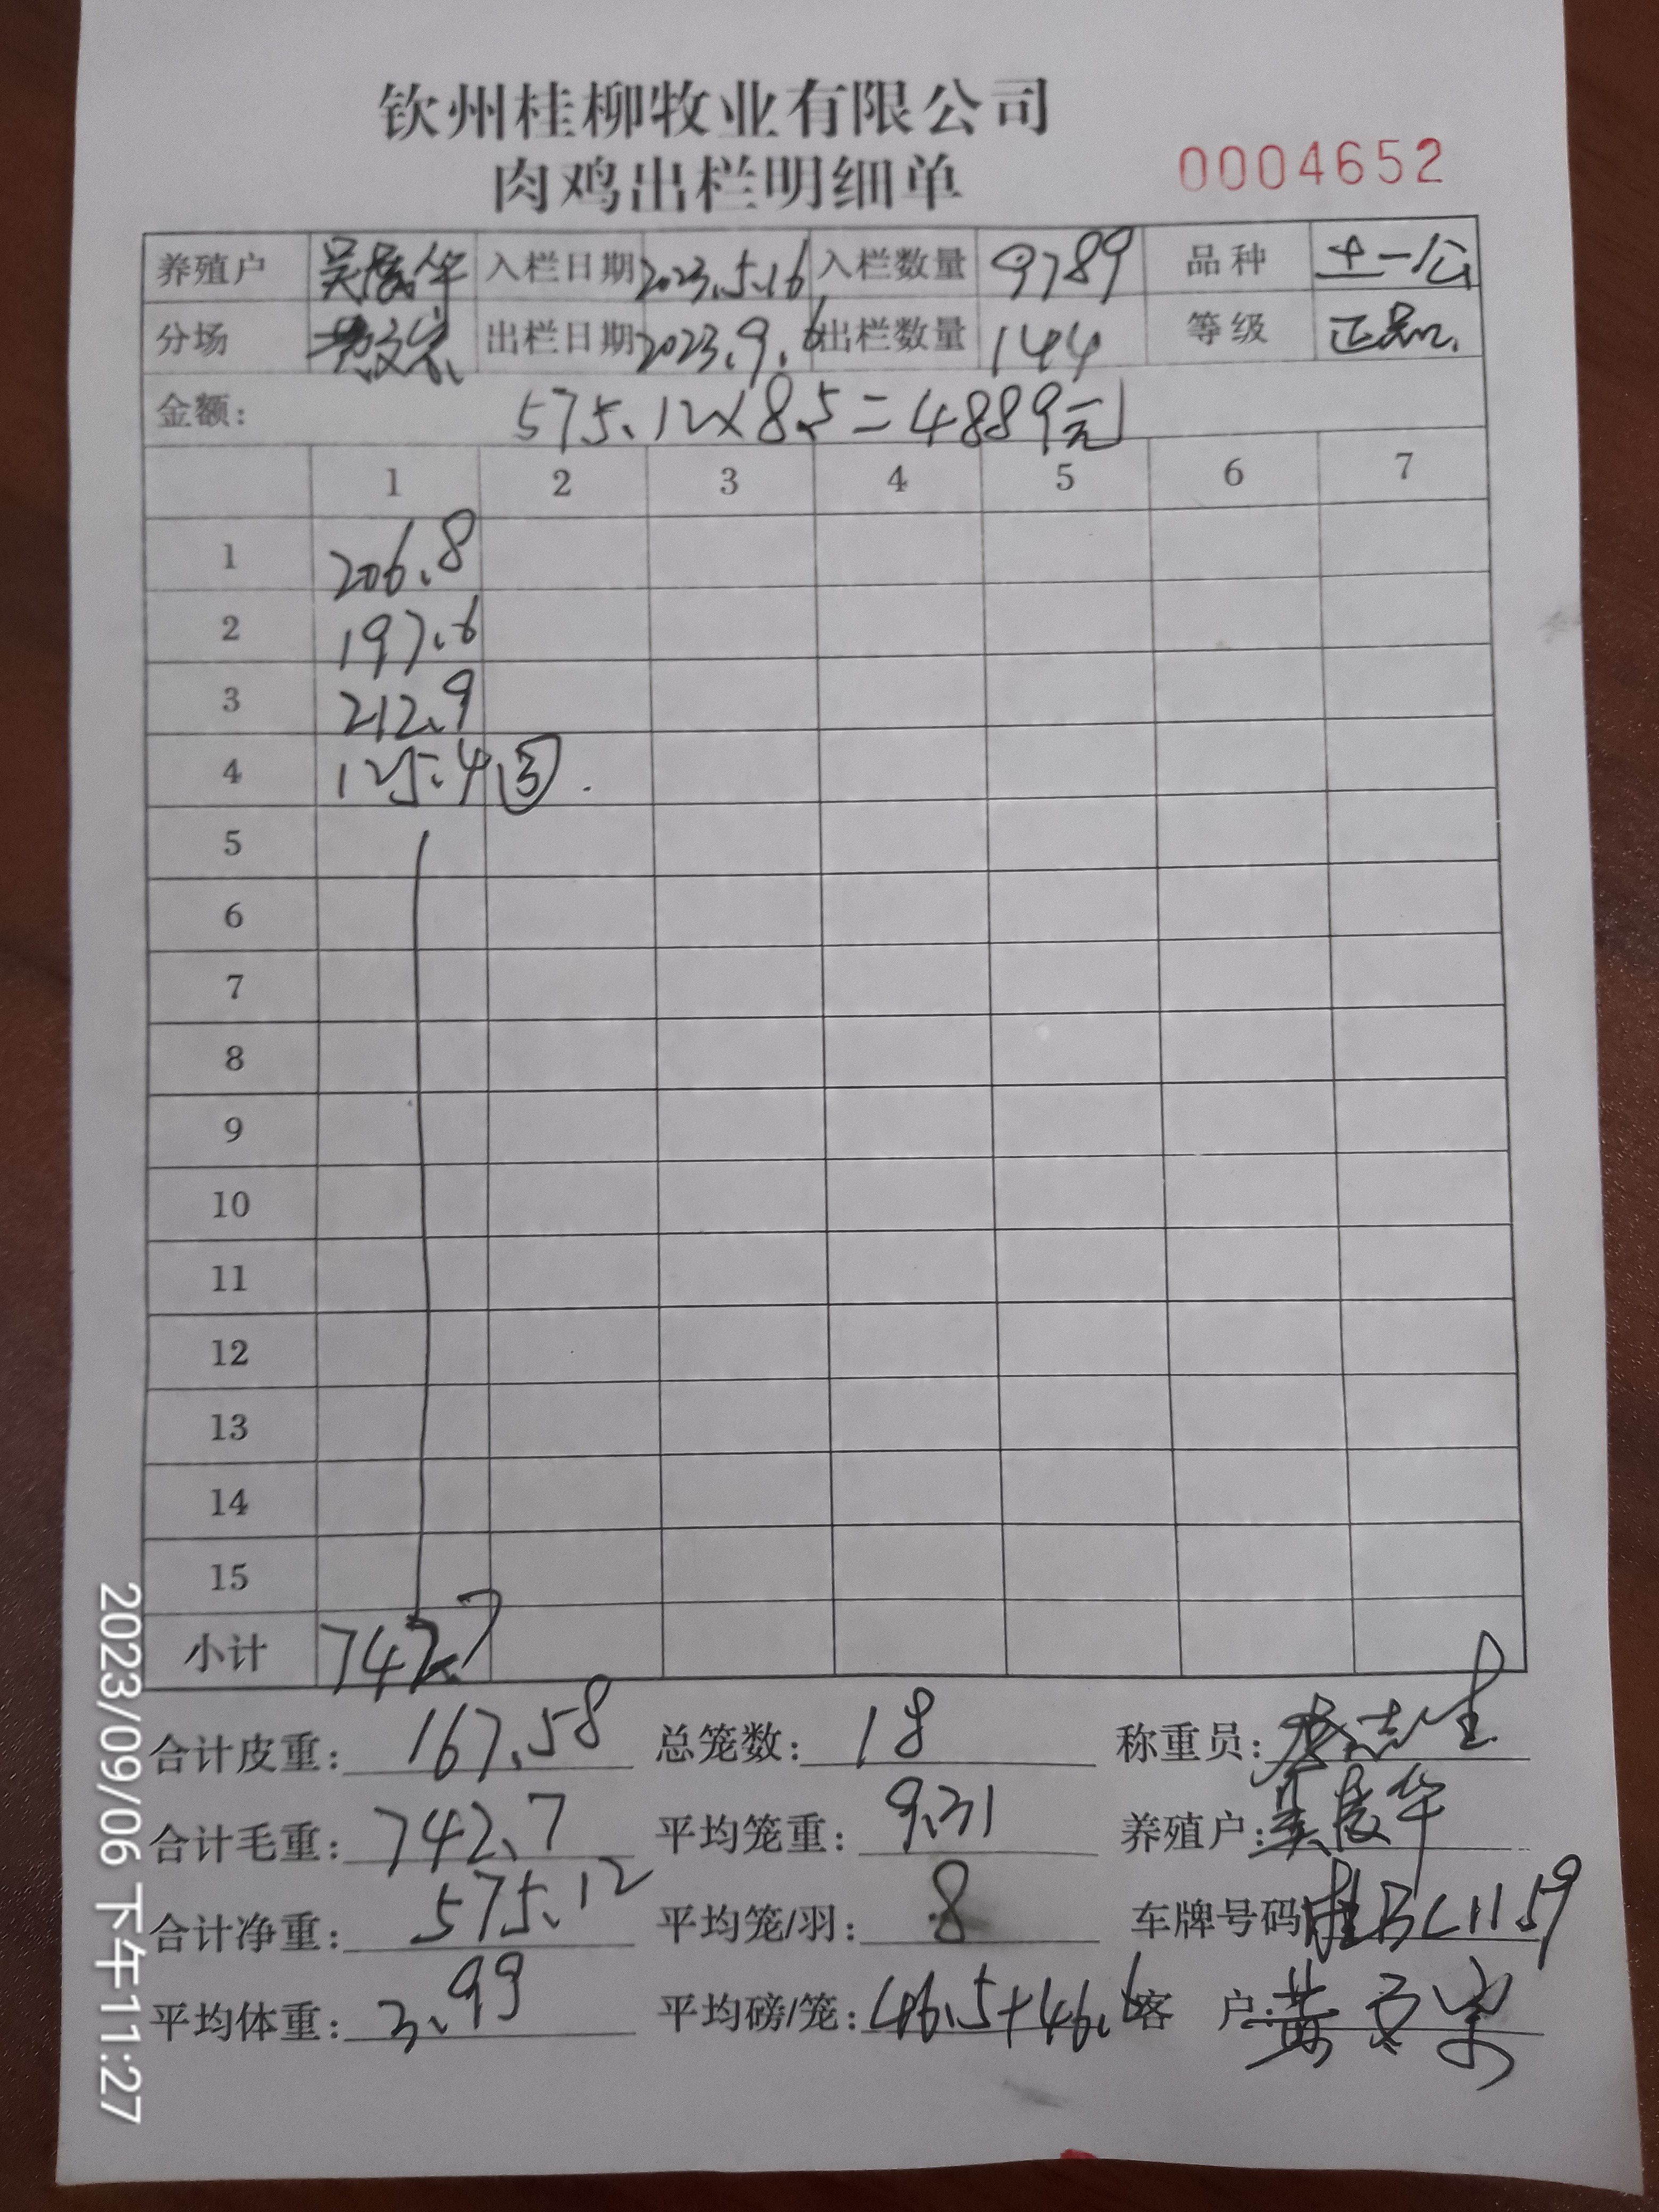 钦州桂柳牧业有限公司
肉鸡出栏明细单 0004652
养殖户 吴 华 入栏日期 2023.5.16 入栏数量 9789 品种 土一公
分场 出栏日期 2023.9.6 出栏数量 144 等级 正品
金额: 575.12×8.5=4889元
1 2 3 4 5 6 7
1 206.8
2 197.6
3 212.9
4 125.4 ③
5
6
7
8
9
10
11
12
13
14
15
小计 742.7
合计皮重: 167.58 总笼数: 18 称重员: 志生
合计毛重: 742.7 平均笼重: 9.31 养殖户: 吴 华
合计净重: 575.12 平均笼/羽: 8 车牌号码 桂BC1159
平均体重: 3.99 平均磅/笼: 46.5+46.6 客 户: 黄
2023/09/06 下午11:27